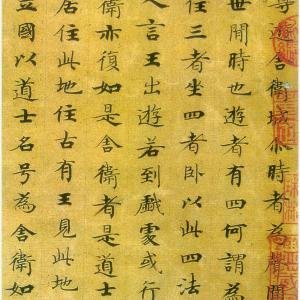 尊遊舍衛城尒時者為聲聞
世間時也遊者有四何謂為
住三者坐四者卧以此四法
人言王出遊若到戲處或行
衛亦復如是舍衛者是道士
居住此地往古有王見此地
立國以道士名號為舍衛如